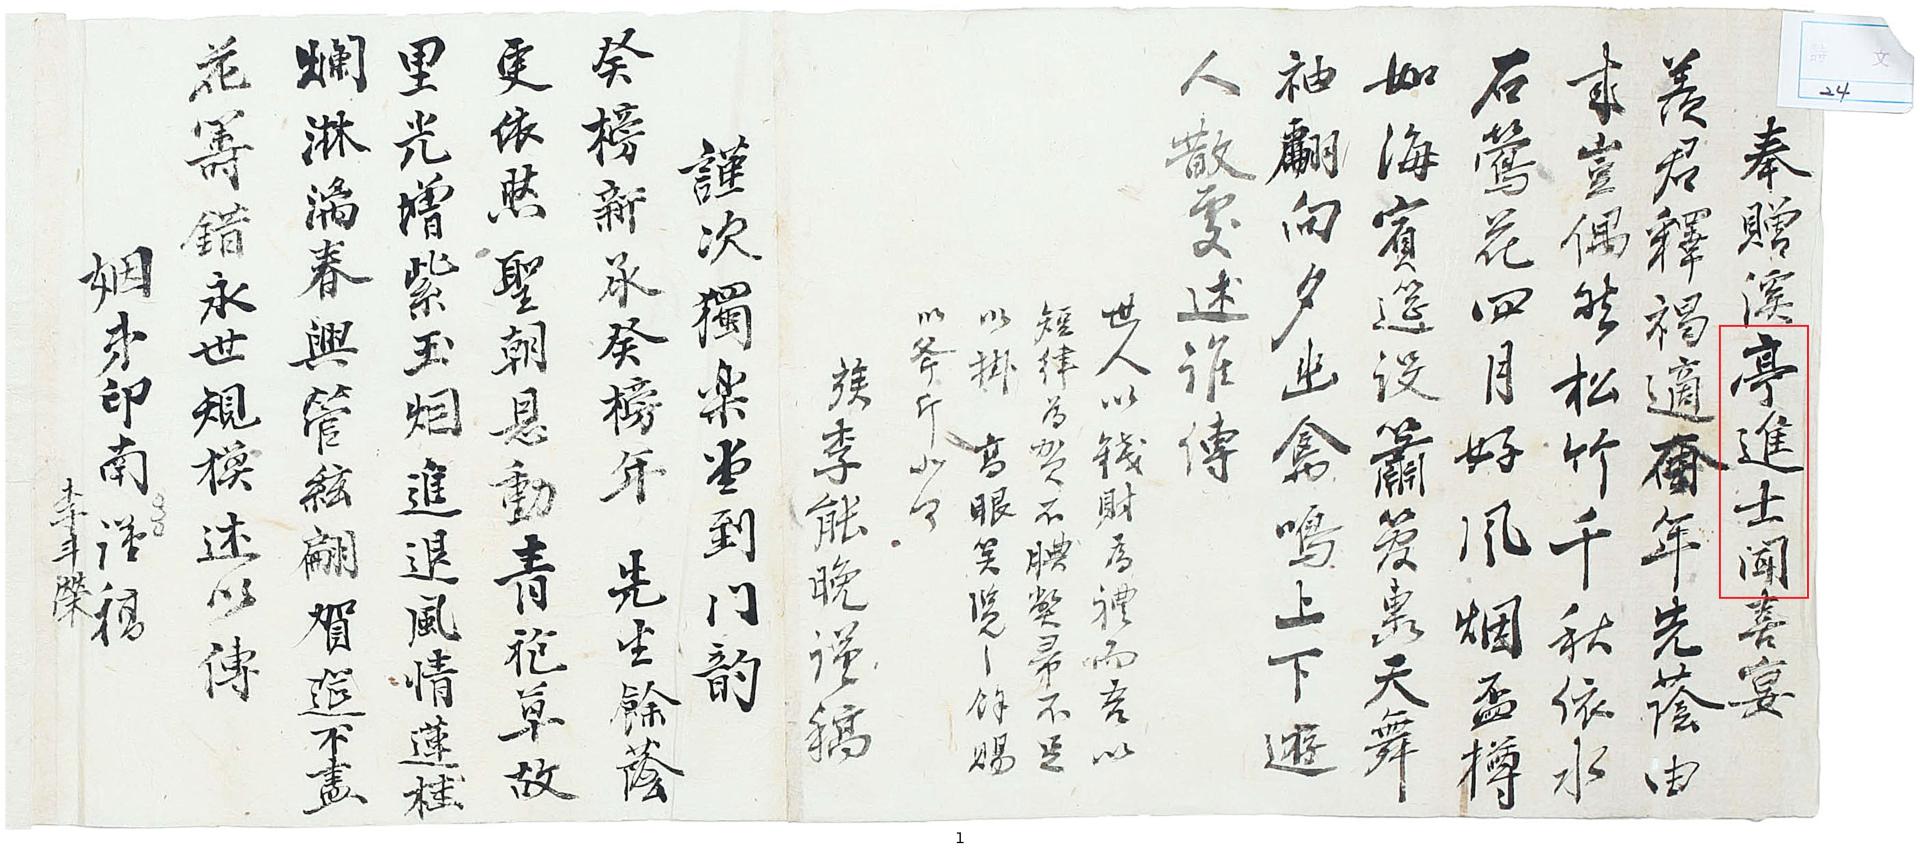 奉贈溪亭進士聞喜宴
羨君釋褐適南年先蔭由
來豈偶然松竹千秋依水
石鶯花四月好風烟盃樽
如海賓筵設簫管衆天舞
袖翩向夕出禽鳴上下遊
人散處述誰傳
世人以錢財爲禮而吾以
短律爲賀不腆弊帚不足
以掛高眼笑覽餘賜
以斧斤
李能晩謹稿
謹次獨樂堂到门韵
癸榜新承癸榜年先生餘蔭
更依然聖朝恩動青袍草故
里光增紫玉烟進退風情蓮桂
爛淋漓春興管絃翩賀筵不盡
花籌錯永世規模述以傳
姻弟印南謹稿
李斗榮
詩文
24
1